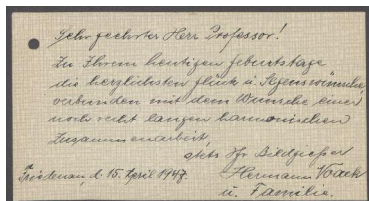 Sehr geehrter Herr Professor!
Zu Ihrem heutigen Geburtstage
die herzlichsten Glück u. Segenswünsche,
verbunden mit dem Wunsche einer
noch recht langen harmonischen
Zusammenarbeit
stets Ihr Bildgießer
Friedenau, d. 15. April 1947. Hermann Noack
u. Familie.